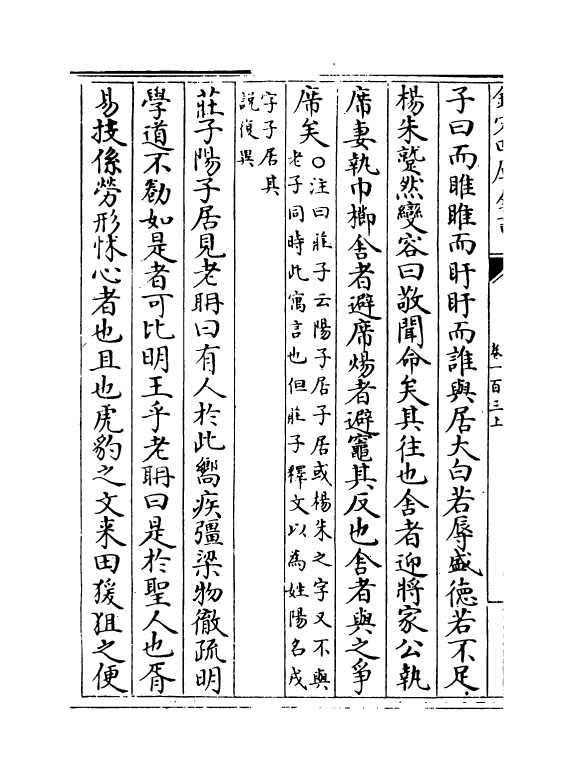 欽定四庫全書
卷一百三上
子曰而睢睢而盱盱而誰與居大白若辱盛徳若不足
楊朱蹵然變容曰敬聞命矣其往也舍者迎將家公執
席妻執巾櫛舍者避席煬者避竈其反也舍者與之爭
席矣○注曰莊子云陽子居子居或楊朱之字又不與
老子同時此寓言也但莊子釋文以為姓陽名戎
字子居其
説復異
莊子陽子居見老聃曰有人於此嚮疾彊梁物徹疏明
學道不勌如是者可比明王乎老聃曰是於聖人也胥
易技係勞形怵心者也且也虎豹之文來田猨狙之便